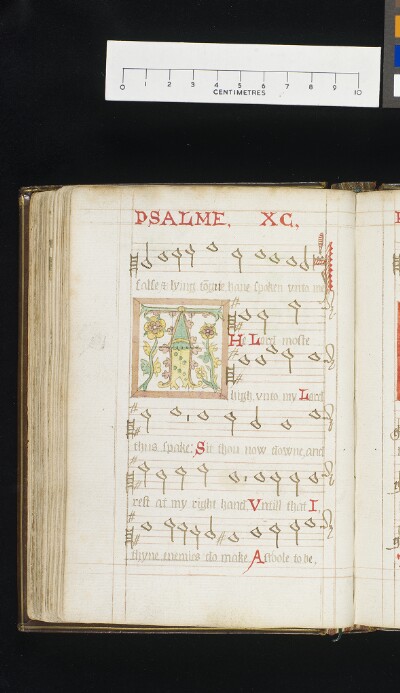 0 1 2 3 4 5 6 7 8 9 10
CENTIMETRES
PSALME. XC.
false & lying tōgue have spoken vnto me
THe Lord moste
high, vnto my Lord
thus spake: Sit thou now downe, and
rest at my right hand, Vntill that I,
thyne enemies do make A stole to be,